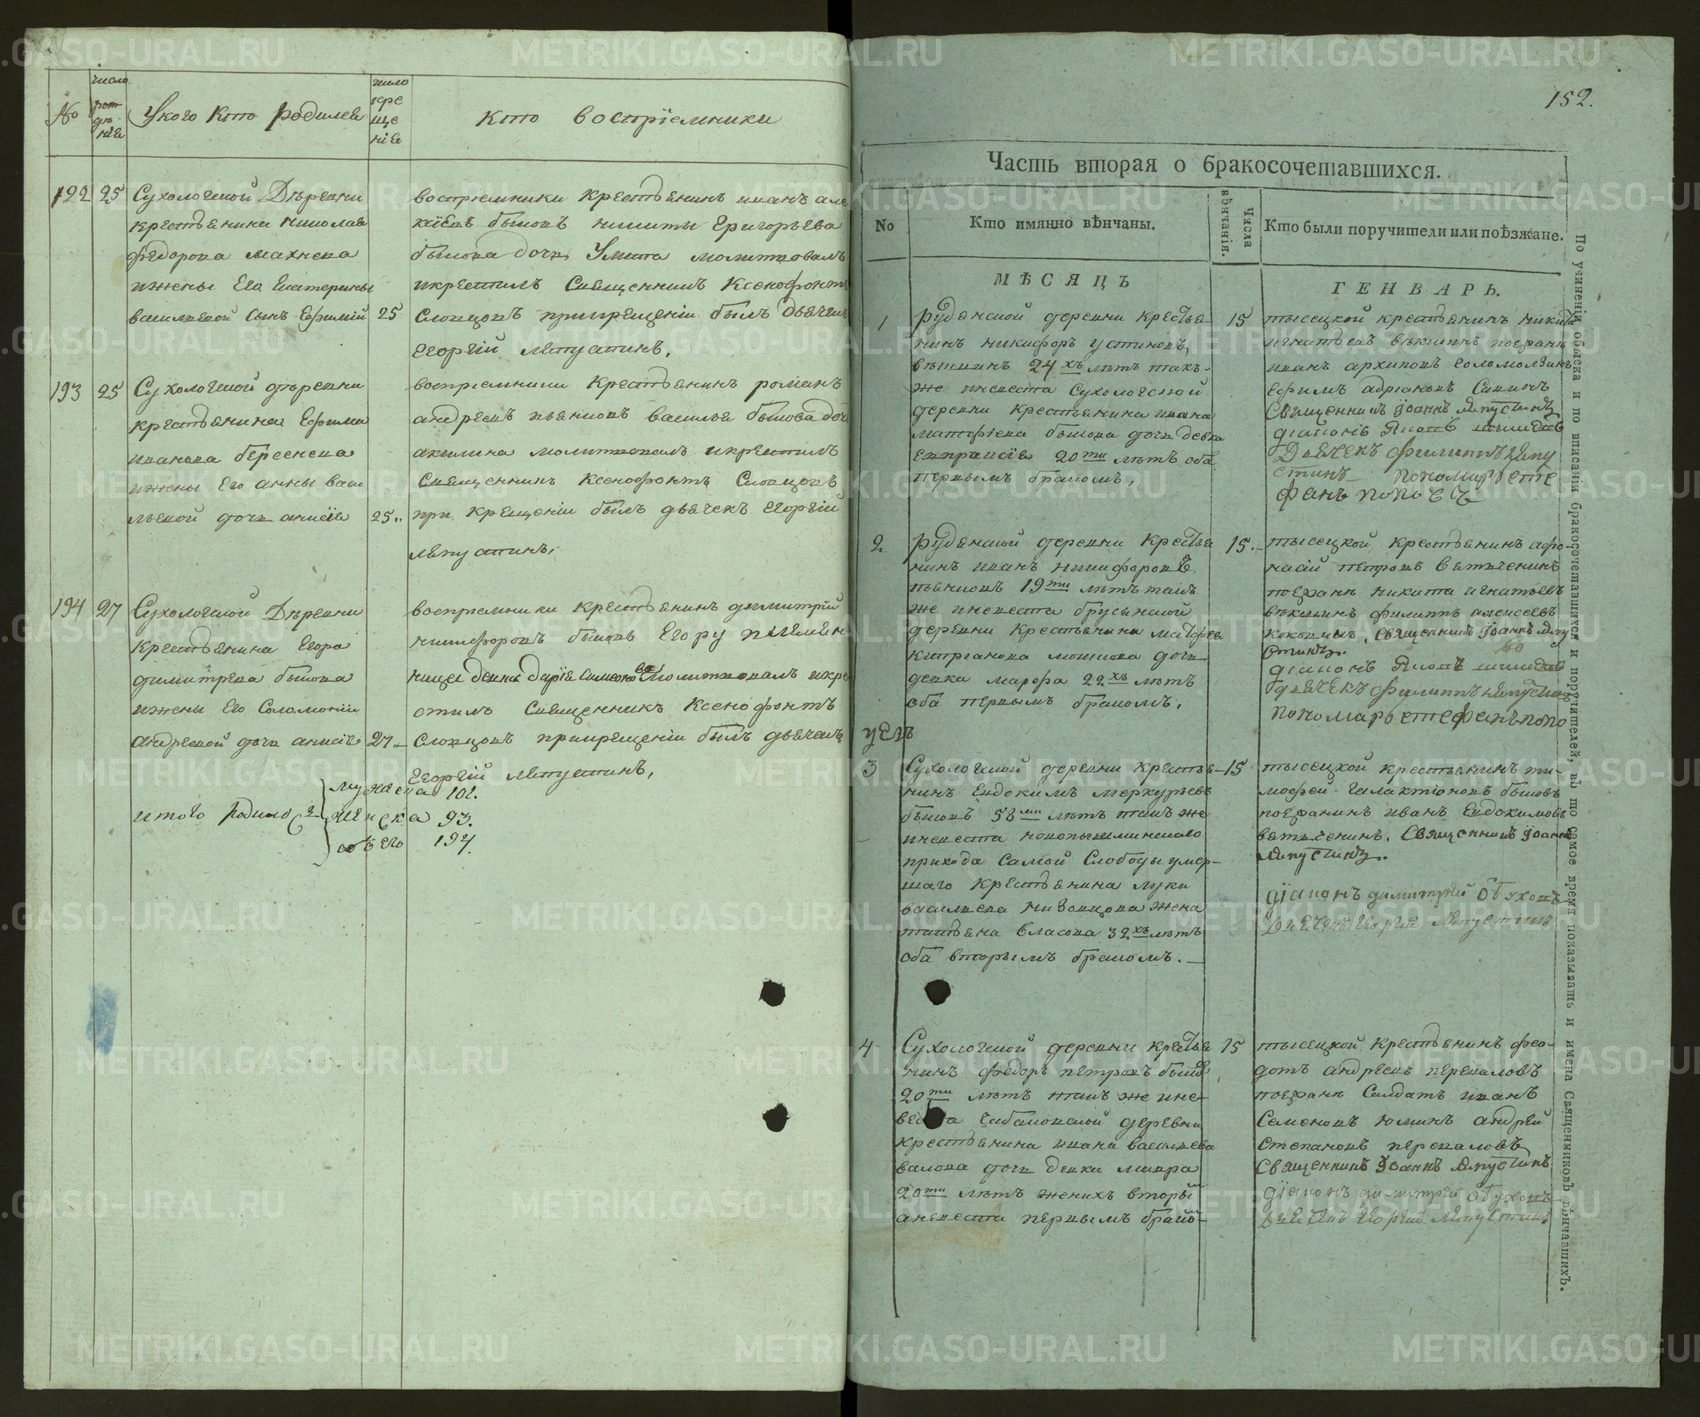 №
число рождѣнiе
Укого Кто родилсе
число креще нiе
кто воспрiемники
192 25 Сухологской Дѣревни
крестьянина николая
федорова махнева
ижены Его Екатерины
васильевой сынъ Ефимiй 25
воспрiемники Крестьянинъ иванъ але
былова дочь Улита молитвовалъ
икрестилъ Священникъ Ксенофонтъ
Словцовъ прикрещенiи былъ дьячекъ
Георгiй Ляпустинъ,
193 25 Сухологской дѣревни
крестьянина Ефима
иванова береснева
ижены Его анны васи
льевой дочь анисiя 25..
воспрiемники Крестьянинъ романъ
андреевъ пьянковъ василья былова доч
акилина молитвовалъ икрестилъ
Священникъ Ксенофонтъ Словцовъ
при крещенiи былъ дьячекъ Георгiй
Ляпустинъ,
194 27 Сухологской Дѣревни
Крестьянина Егора
димитрева былова
ижены Его Соломонiи
андреевой дочь анисiя 27
воспрiемники Крестьянинъ димитрiй
никифоровъ быловъ Егору племян
ница девка дарiя Симеонова молитвовалъ икре
стилъ Священникъ Ксенофонтъ
Словцовъ прикрещенiи былъ дьячекъ
Георгiй Ляпустинъ,
итого родилос
мужеска 101.
женска 93.
обѣего 194.
152.
Часть вторая о бракосочетавшихся.
No
Кто имянно вѣнчаны.
Числа вѣнчанiя.
Кто были поручители или поѣзжане.
МѢСЯЦЪ
ГЕНВАРЬ.
1 Рудянской деревни Крестья 15
нинъ никифоръ устиновъ
вѣшкинъ 24 хъ лѣтъ такъ
же иневеста Сухологской
деревни Крестьянина ивана
матфiева былова дочь девка
Евпраксiя 20ти лѣтъ оба
первымъ бракомъ,
тысецкой крестьянинъ никита
игнатьевъ вѣшкинъ поезжанъ
иванъ архиповъ
Ефимъ адрiановъ
Священникъ Iоаннъ Ляпустинъ
дiаконъ Яковъ
Дьячекъ филиппъ Ляпу
стинъ пономарь сте
фанъ поповъ
2 Рудянской деревни Крестья 15.
нинъ иванъ никифоровъ
пьянковъ 19ти лѣтъ такъ
же иневеста брусянской
деревни Крестьянина матфея
кипрiанова дочь
девка марфа 22хъ лѣтъ
оба первымъ бракомъ,
тысецкой крестьянинъ афо-
насiй петровъ вятченинъ
поезжанъ никита игнатьевъ
вѣшкинъ филиппъ алексеевъ
Священникъ Iоаннъ Ляпу
стинъ.
дiаконъ Яковъ
дьячекъ филиппъ Ляпустинъ
пономарь стефанъ попо
3 Сухологской деревни крестья- 15
нинъ Евдокимъ меркурьевъ
быловъ 58ми лѣтъ такъ же
иневеста новопышминскаго
прихода Самой Слободы умер-
шаго Крестьянина луки
васильева жена
татьяна власова 32хъ лѣтъ
оба вторымъ бракомъ.
тысецкой крестьянинъ ти-
мофей галактiоновъ быловъ
поезжанинъ иванъ Евдокимовъ
вятченинъ. Священникъ Iоаннъ
Ляпустинъ.
дiаконъ димитрiй Обуховъ
дьячекъ Георгiй Ляпустинъ
4 Сухологской деревни крестья 15
нинъ федоръ петровъ быловъ
20ти лѣтъ такъ же ине-
веста деревни
крестьянина ивана васильева
валова дочь девка мавра
20ти лѣтъ женихъ вторы
аневеста первымъ брако
тысецкой Крестьянинъ фео-
дотъ андреевъ переваловъ
поезжанъ Салдатъ иванъ
Семеновъ андрей
Степановъ перваловъ
Священникъ Iоаннъ Ляпустинъ
дiаконъ димитрей Обуховъ
дьячекъ Георгiй Ляпустинъ
По учиненiи обыска и по вписанiи бракосочетавшихся и поручителей, въ то самое время показывать и имена Священниковъ вѣнчавшихъ.
METRIKI.GASO-URAL.RU